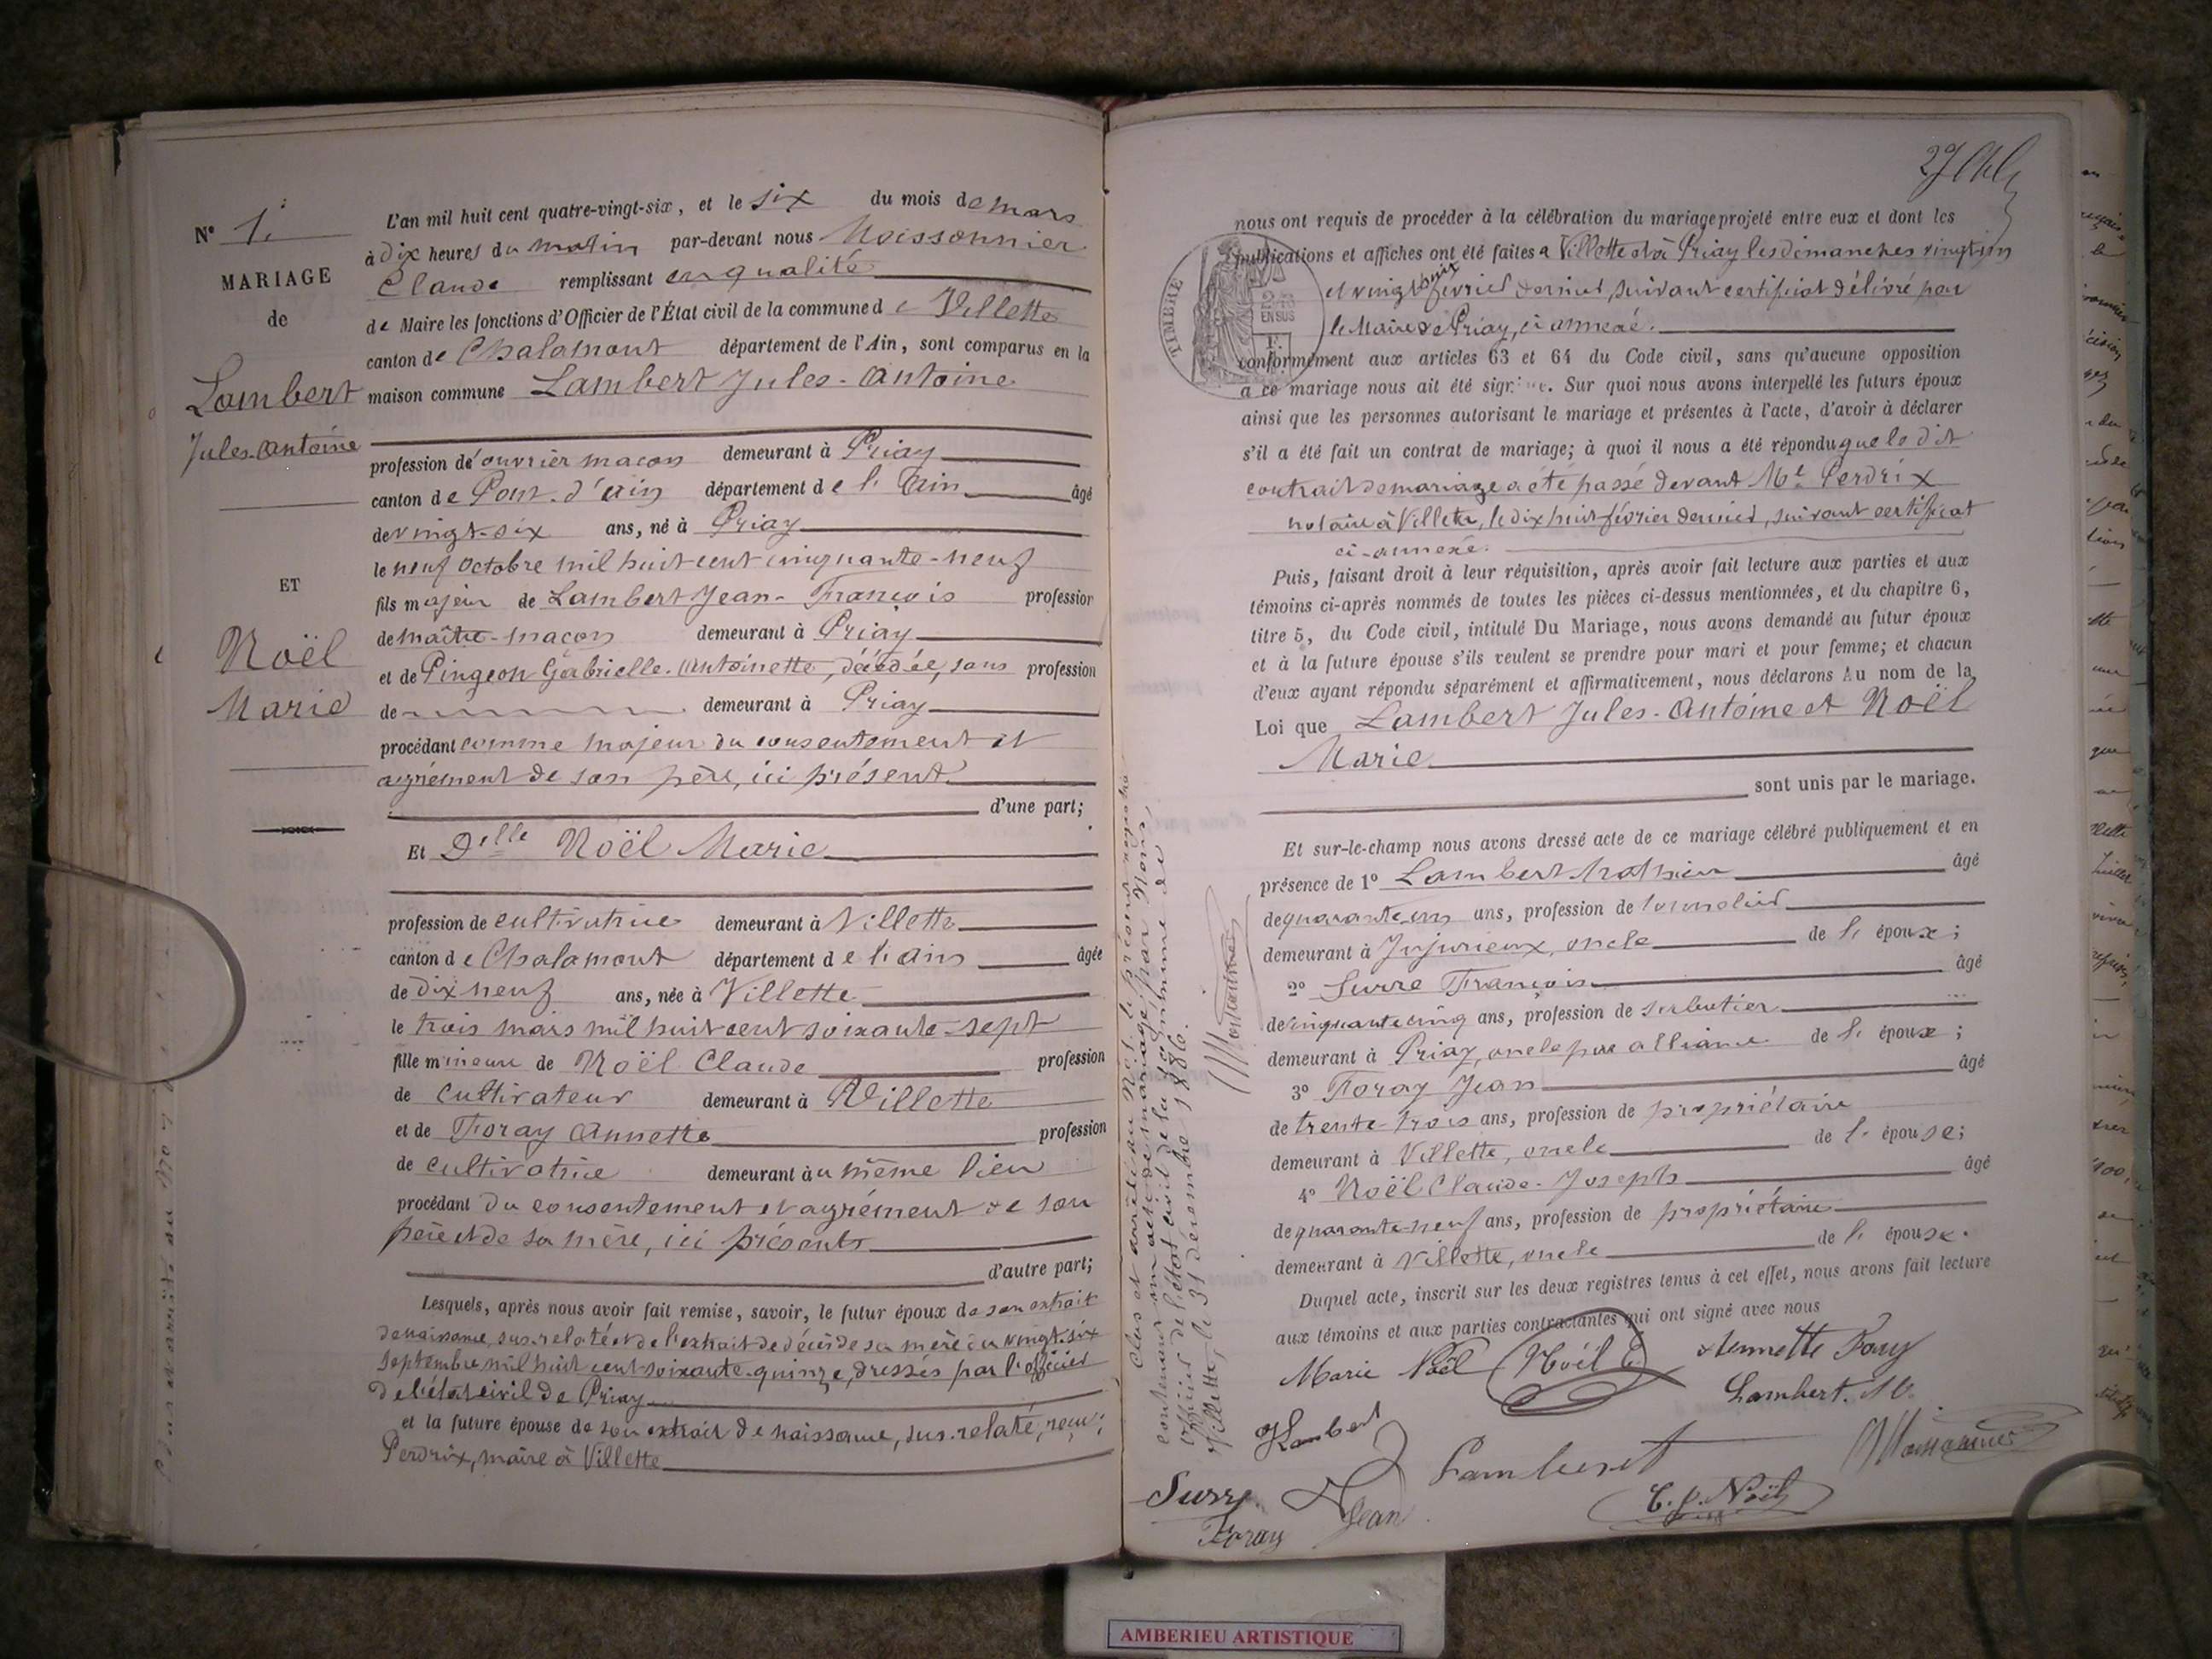 N° 1.
MARIAGE
de
Lambert
Jules-Antoine
ET
Noël
Marie
L'an mil huit cent quatre-vingt-six, et le six du mois de mars
à dix heures du matin par-devant nous Moissonnier
Claude remplissant en qualité
de Maire les fonctions d'Officier de l'État civil de la commune de Villette
canton de Chalamont département de l'Ain, sont comparus en la
maison commune Lambert Jules-Antoine
profession d'ouvrier maçon demeurant à Priay
canton de Pont-d'ain département de l'Ain âgé
de vingt-six ans, né à Priay
le neuf Octobre mil huit cent cinquante-neuf
fils majeur de Lambert Jean-François profession
de maître-maçon demeurant à Priay
et de Pingeon Gabrielle-Antoinette, décédée, sans profession
de demeurant à Priay
procédant comme majeur du consentement et
agrément de son père, ici présent.
d'une part;
Et Delle Noël Marie
profession de cultivatrice demeurant à Villette
canton de Chalamont département de l'ain âgée
de dix neuf ans, née à Villette
le trois mars mil huit cent soixante-sept
fille mineure de Noël Claude profession
de cultivateur demeurant à Villette
et de Foray Annette profession
de cultivatrice demeurant au même lieu
procédant du consentement et agrément de son
père et de sa mère, ici présents
d'autre part;
Lesquels, après nous avoir fait remise, savoir, le futur époux de son extrait
de naissance, sus-relaté et de l'extrait de décès de sa mère du vingt-six
septembre mil huit cent soixante-quinze, dressés par l'officier
de l'état civil de Priay
et la future épouse de son extrait de naissance, sus-relaté, reçu:
Perdrix, maire à Villette
27
nous ont requis de procéder à la célébration du mariage projeté entre eux et dont les
publications et affiches ont été faites à Villette et à Priay les dimanches vingt un
et vingt huit février dernier, suivant certificat délivré par
le Maire de Priay, ci annexé.
TIMBRE
EN SUS
conformément aux articles 63 et 64 du Code civil, sans qu'aucune opposition
à ce mariage nous ait été signifiée. Sur quoi nous avons interpellé les futurs époux
ainsi que les personnes autorisant le mariage et présentes à l'acte, d'avoir à déclarer
s'il a été fait un contrat de mariage; à quoi il nous a été répondu que le dit
contrait de mariage a été passé devant Me Perdrix
notaire à Villette, le dix huit février dernier, suivant certificat
ci-annexé.
Puis, faisant droit à leur réquisition, après avoir fait lecture aux parties et aux
témoins ci-après nommés de toutes les pièces ci-dessus mentionnées, et du chapitre 6,
titre 5, du Code civil, intitulé Du Mariage, nous avons demandé au futur époux
et à la future épouse s'ils veulent se prendre pour mari et pour femme; et chacun
d'eux ayant répondu séparément et affirmativement, nous déclarons Au nom de la
Loi que Lambert Jules-Antoine et Noël
Marie
sont unis par le mariage.
Et sur-le-champ nous avons dressé acte de ce mariage célébré publiquement et en
présence de 1° Lambert Mathieu âgé
de quarante un ans, profession de tonnelier
demeurant à Jujurieux, oncle de l'époux;
2° Surre François âgé
de cinquante cinq ans, profession de sabotier
demeurant à Priay, oncle par alliance de l'époux;
3° Foray Jean âgé
de trente-trois ans, profession de propriétaire
demeurant à Villette, oncle de l'épouse;
4° Noël Claude-Joseph âgé
de quarante-neuf ans, profession de propriétaire
demeurant à Villette, oncle de l'épouse.
Duquel acte, inscrit sur les deux registres tenus à cet effet, nous avons fait lecture
aux témoins et aux parties contractantes qui ont signé avec nous
Marie Noël Noël C. Annette Foray
Lambert. M.
J Lambert Lambert Moissonnier
Surre Foray Jean C. J. Noël
Clos et arrêté au No 1 le présent registre
contenant un acte de mariage par Nous,
officier de l'état civil de la commune de
Villette, le 31 décembre 1886.
Moissonnier
AMBERIEU ARTISTIQUE